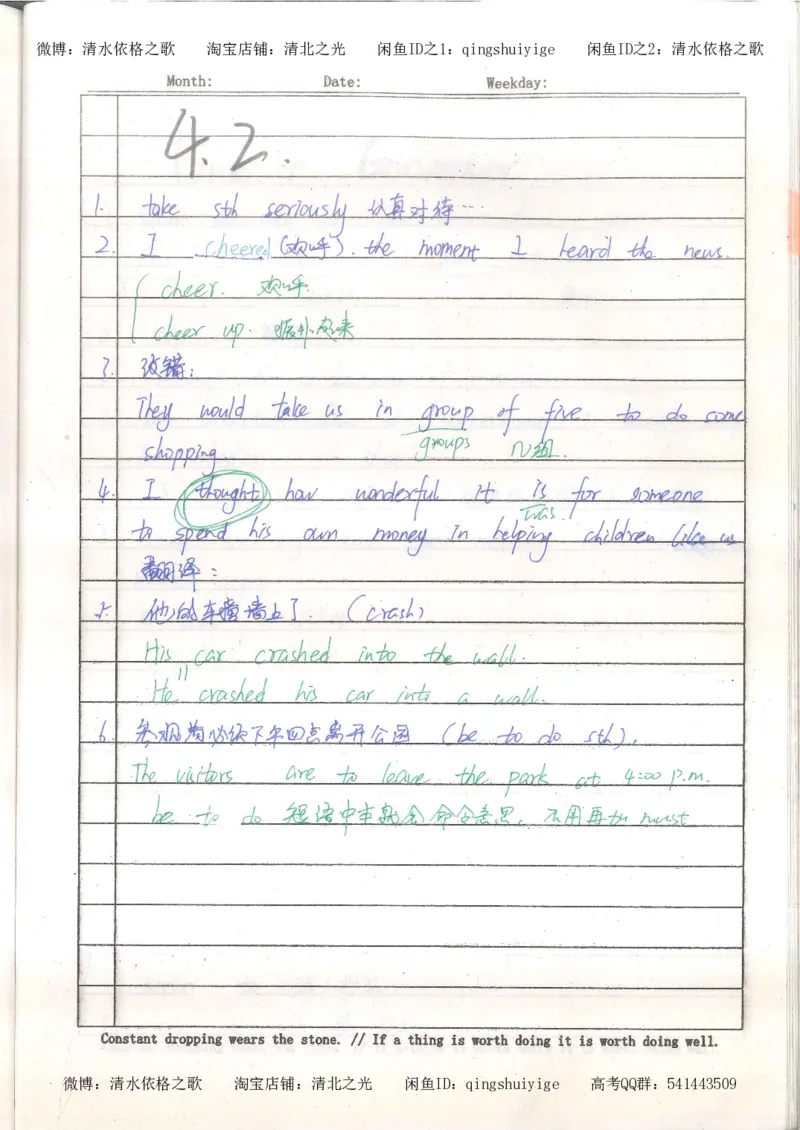 微博：清水依格之歌 淘宝店铺：清北之光 闲鱼ID之1：qingshuiyige 闲鱼ID之2：清水依格之歌
Month: Date: Weekday:
4.2.
1. take sth seriously 认真对待…
2. I cheered (欢呼). the moment I heard the news.
cheer. 欢呼.
cheer up. 振作起来
3. 改错：
They would take us in group of five to do some
groups N组.
shopping.
4. I thought how wonderful it is for someone
was.
to spend his own money in helping children like us
翻译：
5. 他的车撞墙上了. (crash)
His car crashed into the wall.
He crashed his car into a wall.
6. 参观者必须下午四点离开公园 (be to do sth).
The visitors are to leave the park at 4:00 p.m.
be to do 短语中本就含命令意思，不用再加 must
Constant dropping wears the stone. // If a thing is worth doing it is worth doing well.
微博：清水依格之歌 淘宝店铺：清北之光 闲鱼ID：qingshuiyige 高考QQ群：541443509